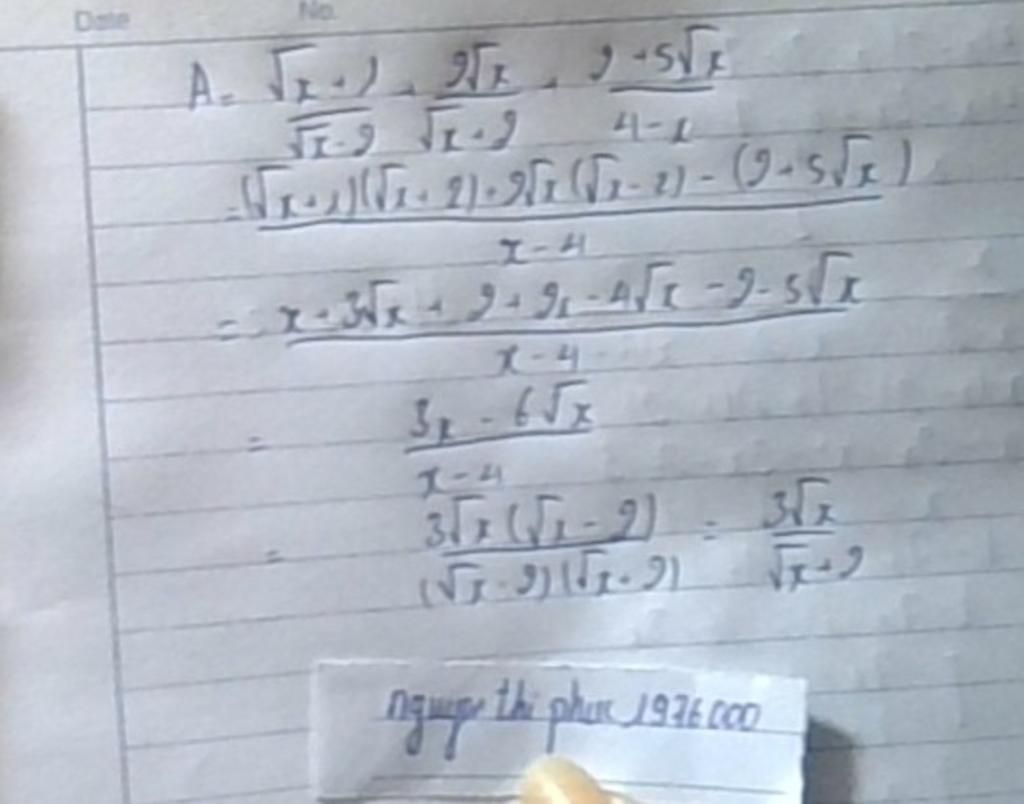 Date No.
A = \frac{\sqrt{x}+1}{\sqrt{x}-2} + \frac{2\sqrt{x}}{\sqrt{x}+2} + \frac{2+5\sqrt{x}}{4-x}
= \frac{(\sqrt{x}+1)(\sqrt{x}+2)+2\sqrt{x}(\sqrt{x}-2)-(2+5\sqrt{x})}{x-4}
= \frac{x+3\sqrt{x}+2+2x-4\sqrt{x}-2-5\sqrt{x}}{x-4}
= \frac{3x-6\sqrt{x}}{x-4}
= \frac{3\sqrt{x}(\sqrt{x}-2)}{(\sqrt{x}-2)(\sqrt{x}+2)} = \frac{3\sqrt{x}}{\sqrt{x}+2}
thi phuc 1976000